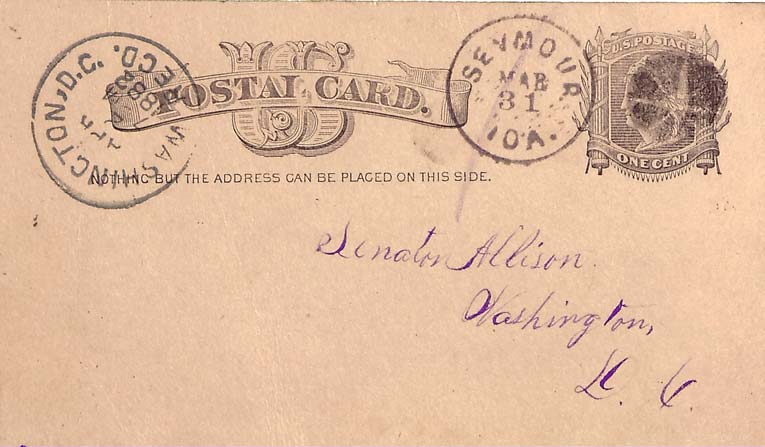 US
POSTAL CARD.
NOTHING BUT THE ADDRESS CAN BE PLACED ON THIS SIDE.
WASHINGTON, D.C.
REC'D.
SEYMOUR
MAR
31
IOA.
U.S. POSTAGE
ONE CENT
Senator Allison.
Washington,
D. C.